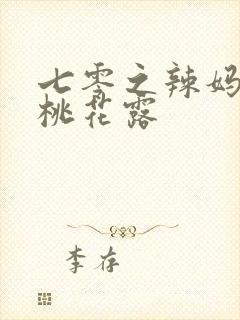 七零之辣妈
桃花露
李存